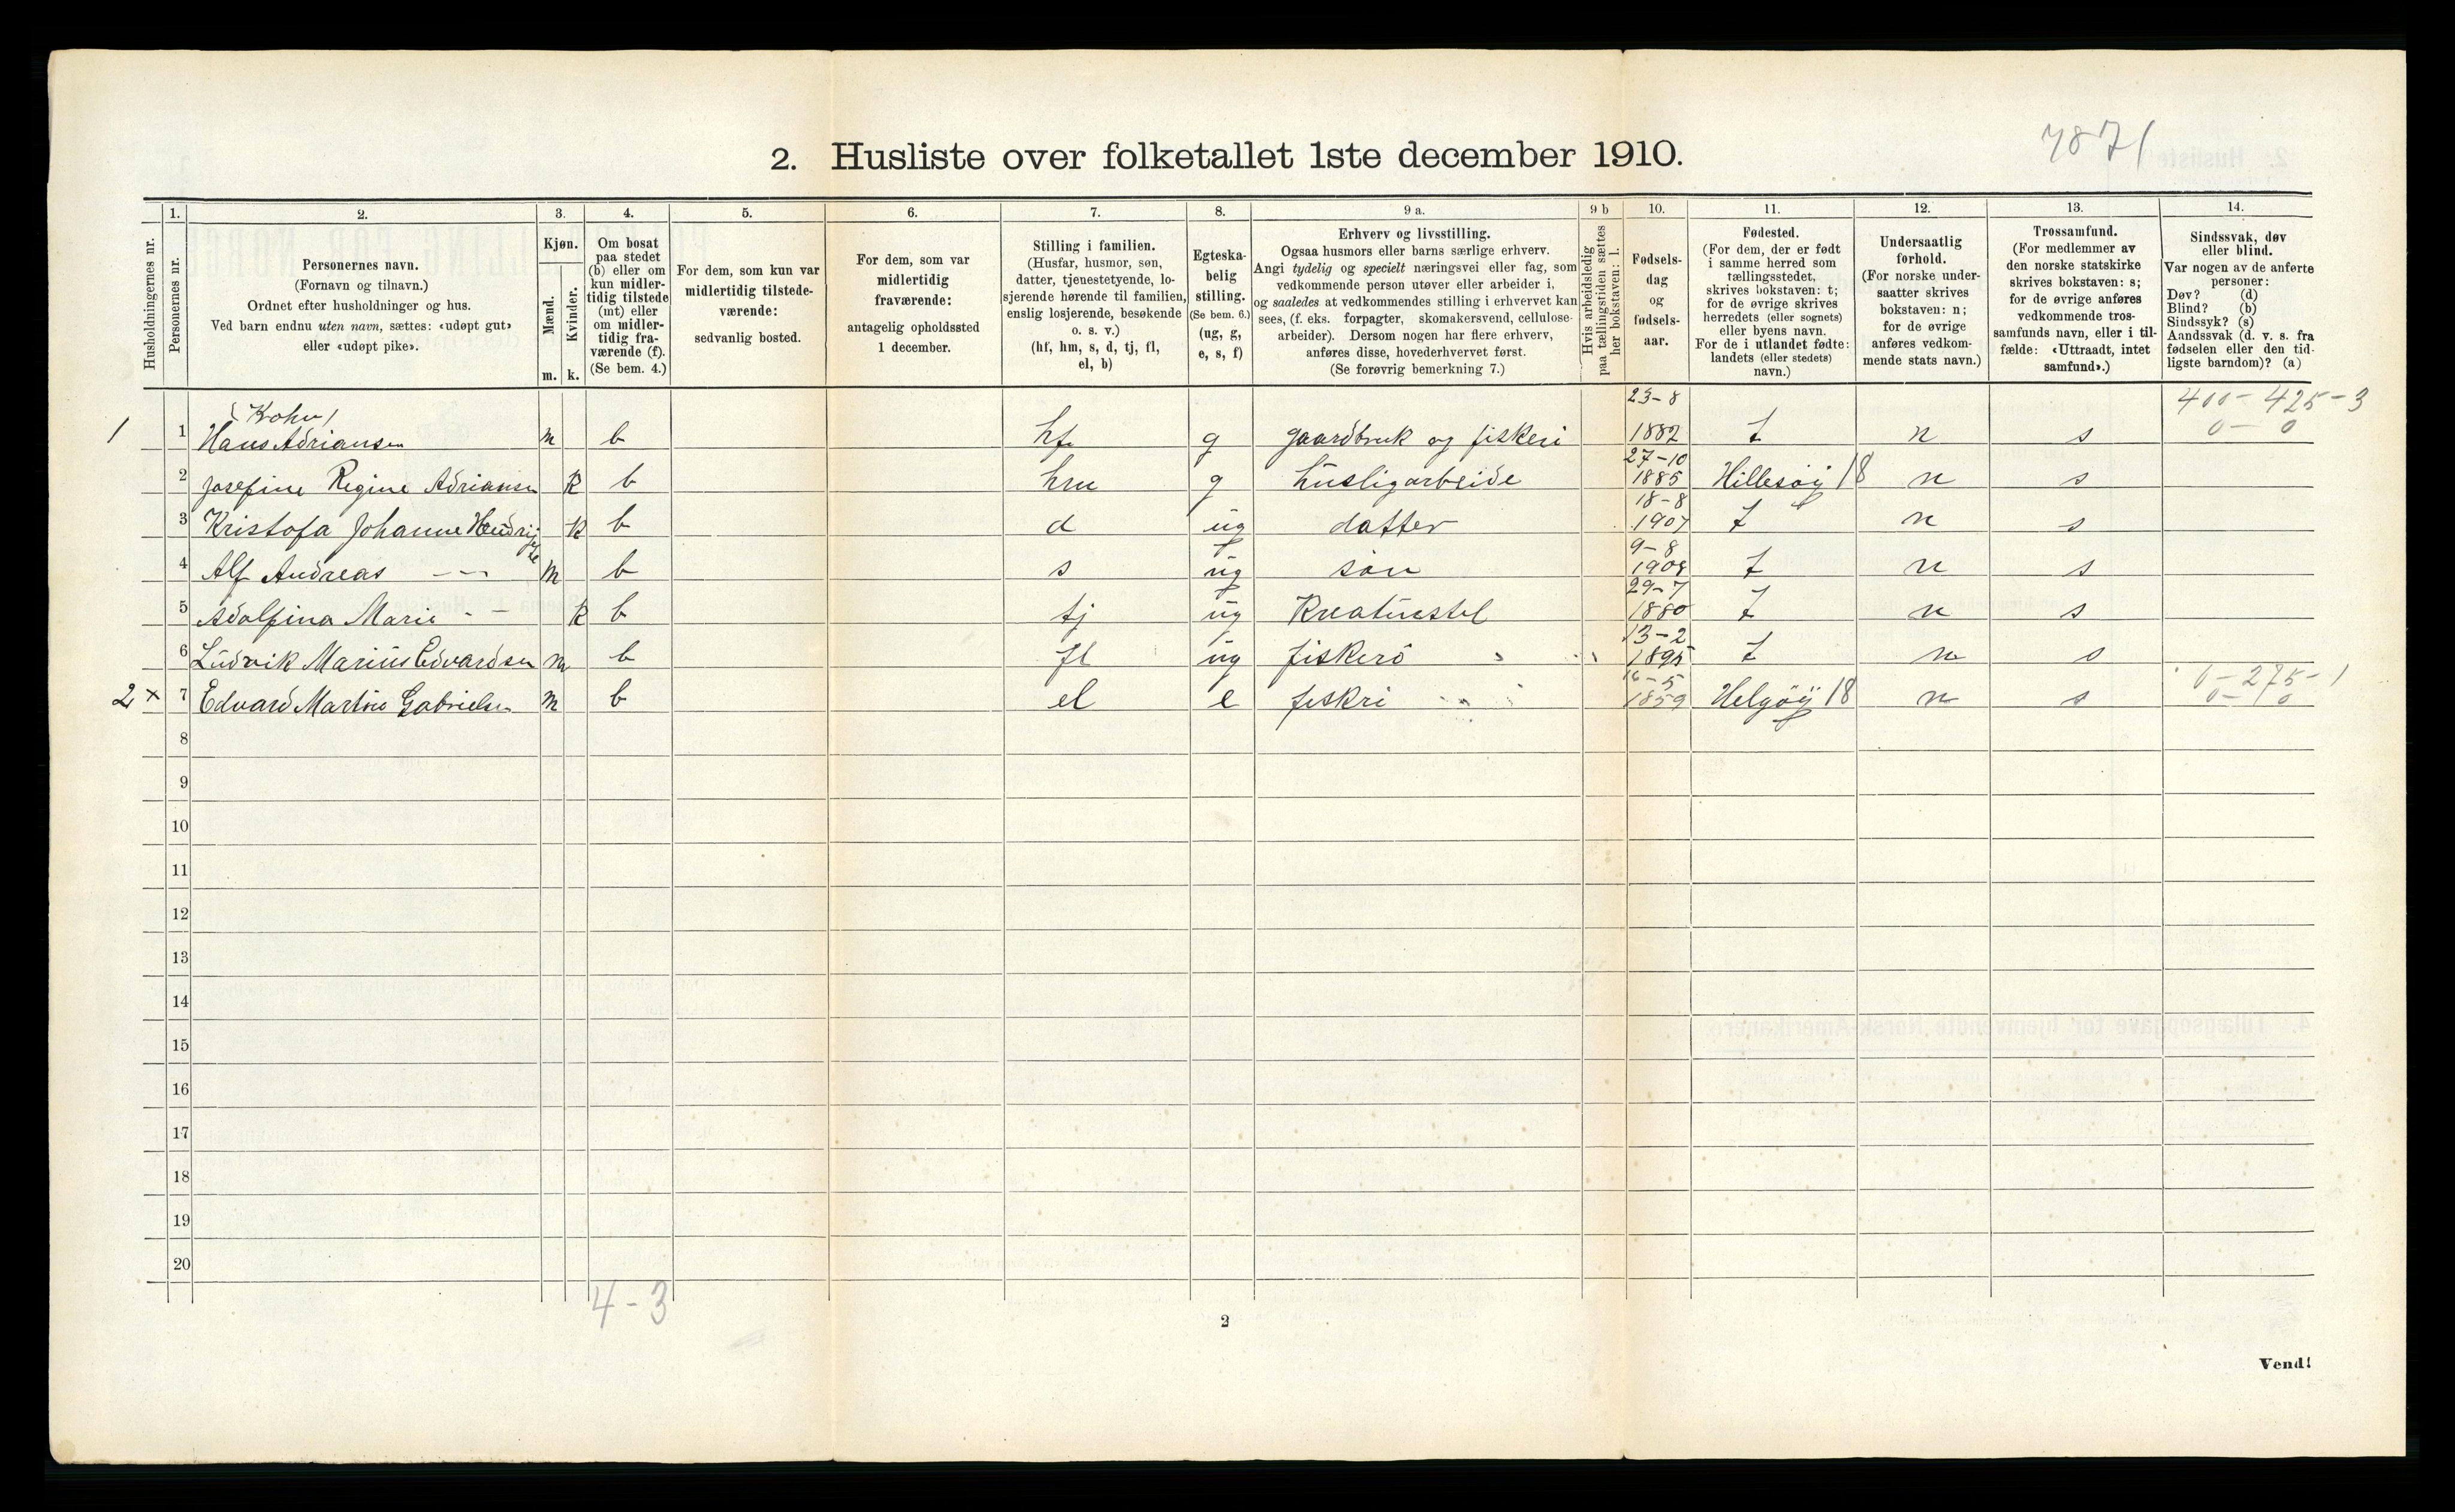 7871
2. Husliste over folketallet 1ste december 1910.
Husholdningernes nr.
1.
Personernes nr.
2.
Personernes navn.
(Fornavn og tilnavn.)
Ordnet efter husholdninger og hus.
Ved barn endnu uten navn, sættes: «udøpt gut»
eller «udøpt pike».
3.
Kjøn.
Mænd.
Kvinder.
m. k.
4.
Om bosat
paa stedet
(b) eller om
kun midler-
tidig tilstede
(mt) eller
om midler-
tidig fra-
værende (f).
(Se bem. 4.)
5.
For dem, som kun var
midlertidig tilstede-
værende:
sedvanlig bosted.
6.
For dem, som var
midlertidig
fraværende:
antagelig opholdssted
1 december.
7.
Stilling i familien.
(Husfar, husmor, søn,
datter, tjenestetyende, lo-
sjerende hørende til familien,
enslig losjerende, besøkende
o. s. v.)
(hf, hm, s, d, tj, fl,
el, b)
8.
Egteska-
belig
stilling.
(Se bem. 6.)
(ug, g,
e, s, f)
9 a.
Erhverv og livsstilling.
Ogsaa husmors eller barns særlige erhverv.
Angi tydelig og specielt næringsvei eller fag, som
vedkommende person utøver eller arbeider i,
og saaledes at vedkommendes stilling i erhvervet kan
sees, (f. eks. forpagter, skomakersvend, cellulose-
arbeider). Dersom nogen har flere erhverv,
anføres disse, hovederhvervet først.
(Se forøvrig bemerkning 7.)
9 b
Hvis arbeidsledig
paa tællingstiden sættes
her bokstaven: l.
10.
Fødsels-
dag
og
fødsels-
aar.
11.
Fødested.
(For dem, der er født
i samme herred som
tællingsstedet,
skrives bokstaven: t;
for de øvrige skrives
herredets (eller sognets)
eller byens navn.
For de i utlandet fødte:
landets (eller stedets)
navn.)
12.
Undersaatlig
forhold.
(For norske under-
saatter skrives
bokstaven: n;
for de øvrige
anføres vedkom-
mende stats navn.)
13.
Trossamfund.
(For medlemmer av
den norske statskirke
skrives bokstaven: s;
for de øvrige anføres
vedkommende tros-
samfunds navn, eller i til-
fælde: «Uttraadt, intet
samfund».)
14.
Sindssvak, døv
eller blind.
Var nogen av de anførte
personer:
Døv? (d)
Blind? (b)
Sindssyk? (s)
Aandssvak (d. v. s. fra
fødselen eller den tid-
ligste barndom)? (a)
23-8 400-425-3
1 1 Hans Adriansen m b hf g gaardbruk og fiskeri 1882 t n s 0-0
27-10
2 Josefine Regine Adriansen k b hm g husligarbeide 1885 Hillesøy 18 n s
18-8
3 Kristofa Johanne k b d ug datter 1907 t n s
9-8
4 Alf Andreas -"- m b s ug søn t n s
29-7
5 Adolfina Marie -"- k b tj ug Kreaturstel 1880 t n s
13-2
6 Ludvik Marius Edvardsen m b fl ug 1895 t n s
16-5 0-275-1
2 x 7 Edvard Martin Gabrielsen m b el e fiskri 1859 Helgøy 18 n s 0-0
8
9
10
11
12
13
14
15
16
17
18
19
20
4-3
2
Vend!